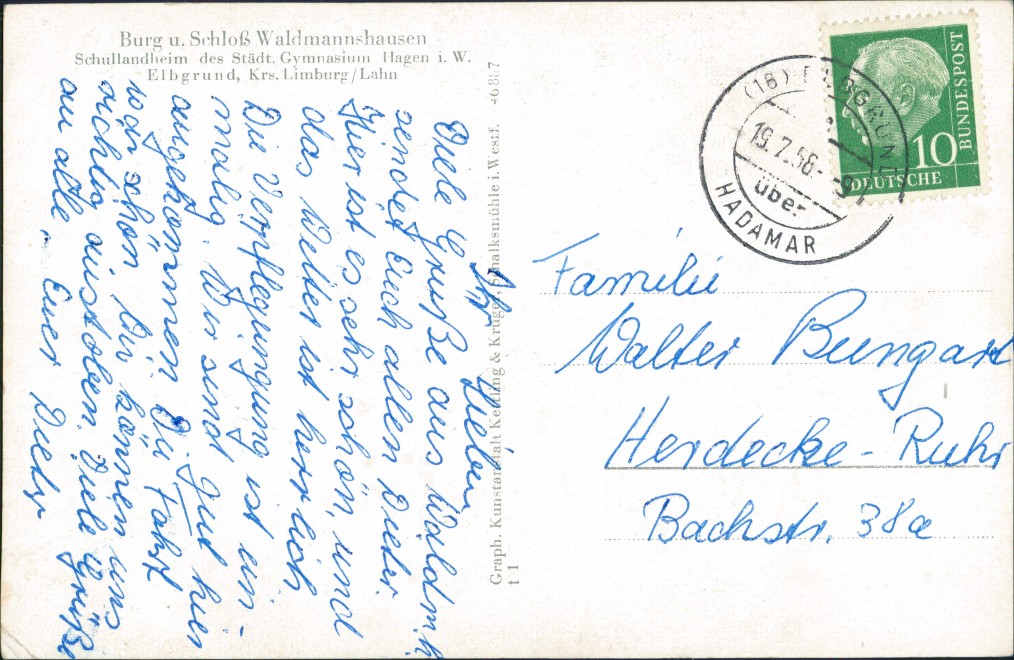 Burg u. Schloß Waldmannshausen
Schullandheim des Städt. Gymnasium Hagen i. W.
Elbgrund, Krs. Limburg/Lahn
Ihr Lieben
Viele Grüße aus Waldm.h.
sendet Euch allen Dieter.
Hier ist es sehr schön, und
das Wetter ist herrlich
Die Verpflegungung ist ein-
malig. Wir sind gut hier
angekommen Die Fahrt
war schön. Wir können uns
richtig austoben. Viele Grüße
an alle, Euer Dieter
Graph. Kunstanstalt Kettling & Krüger, Schalksmühle i. Westf.
t 1
(16)
19.7.58-9
über
HADAMAR
10
DEUTSCHE
BUNDESPOST
Familie
Walter Bungart
Herdecke-Ruhr
Bachstr. 38a